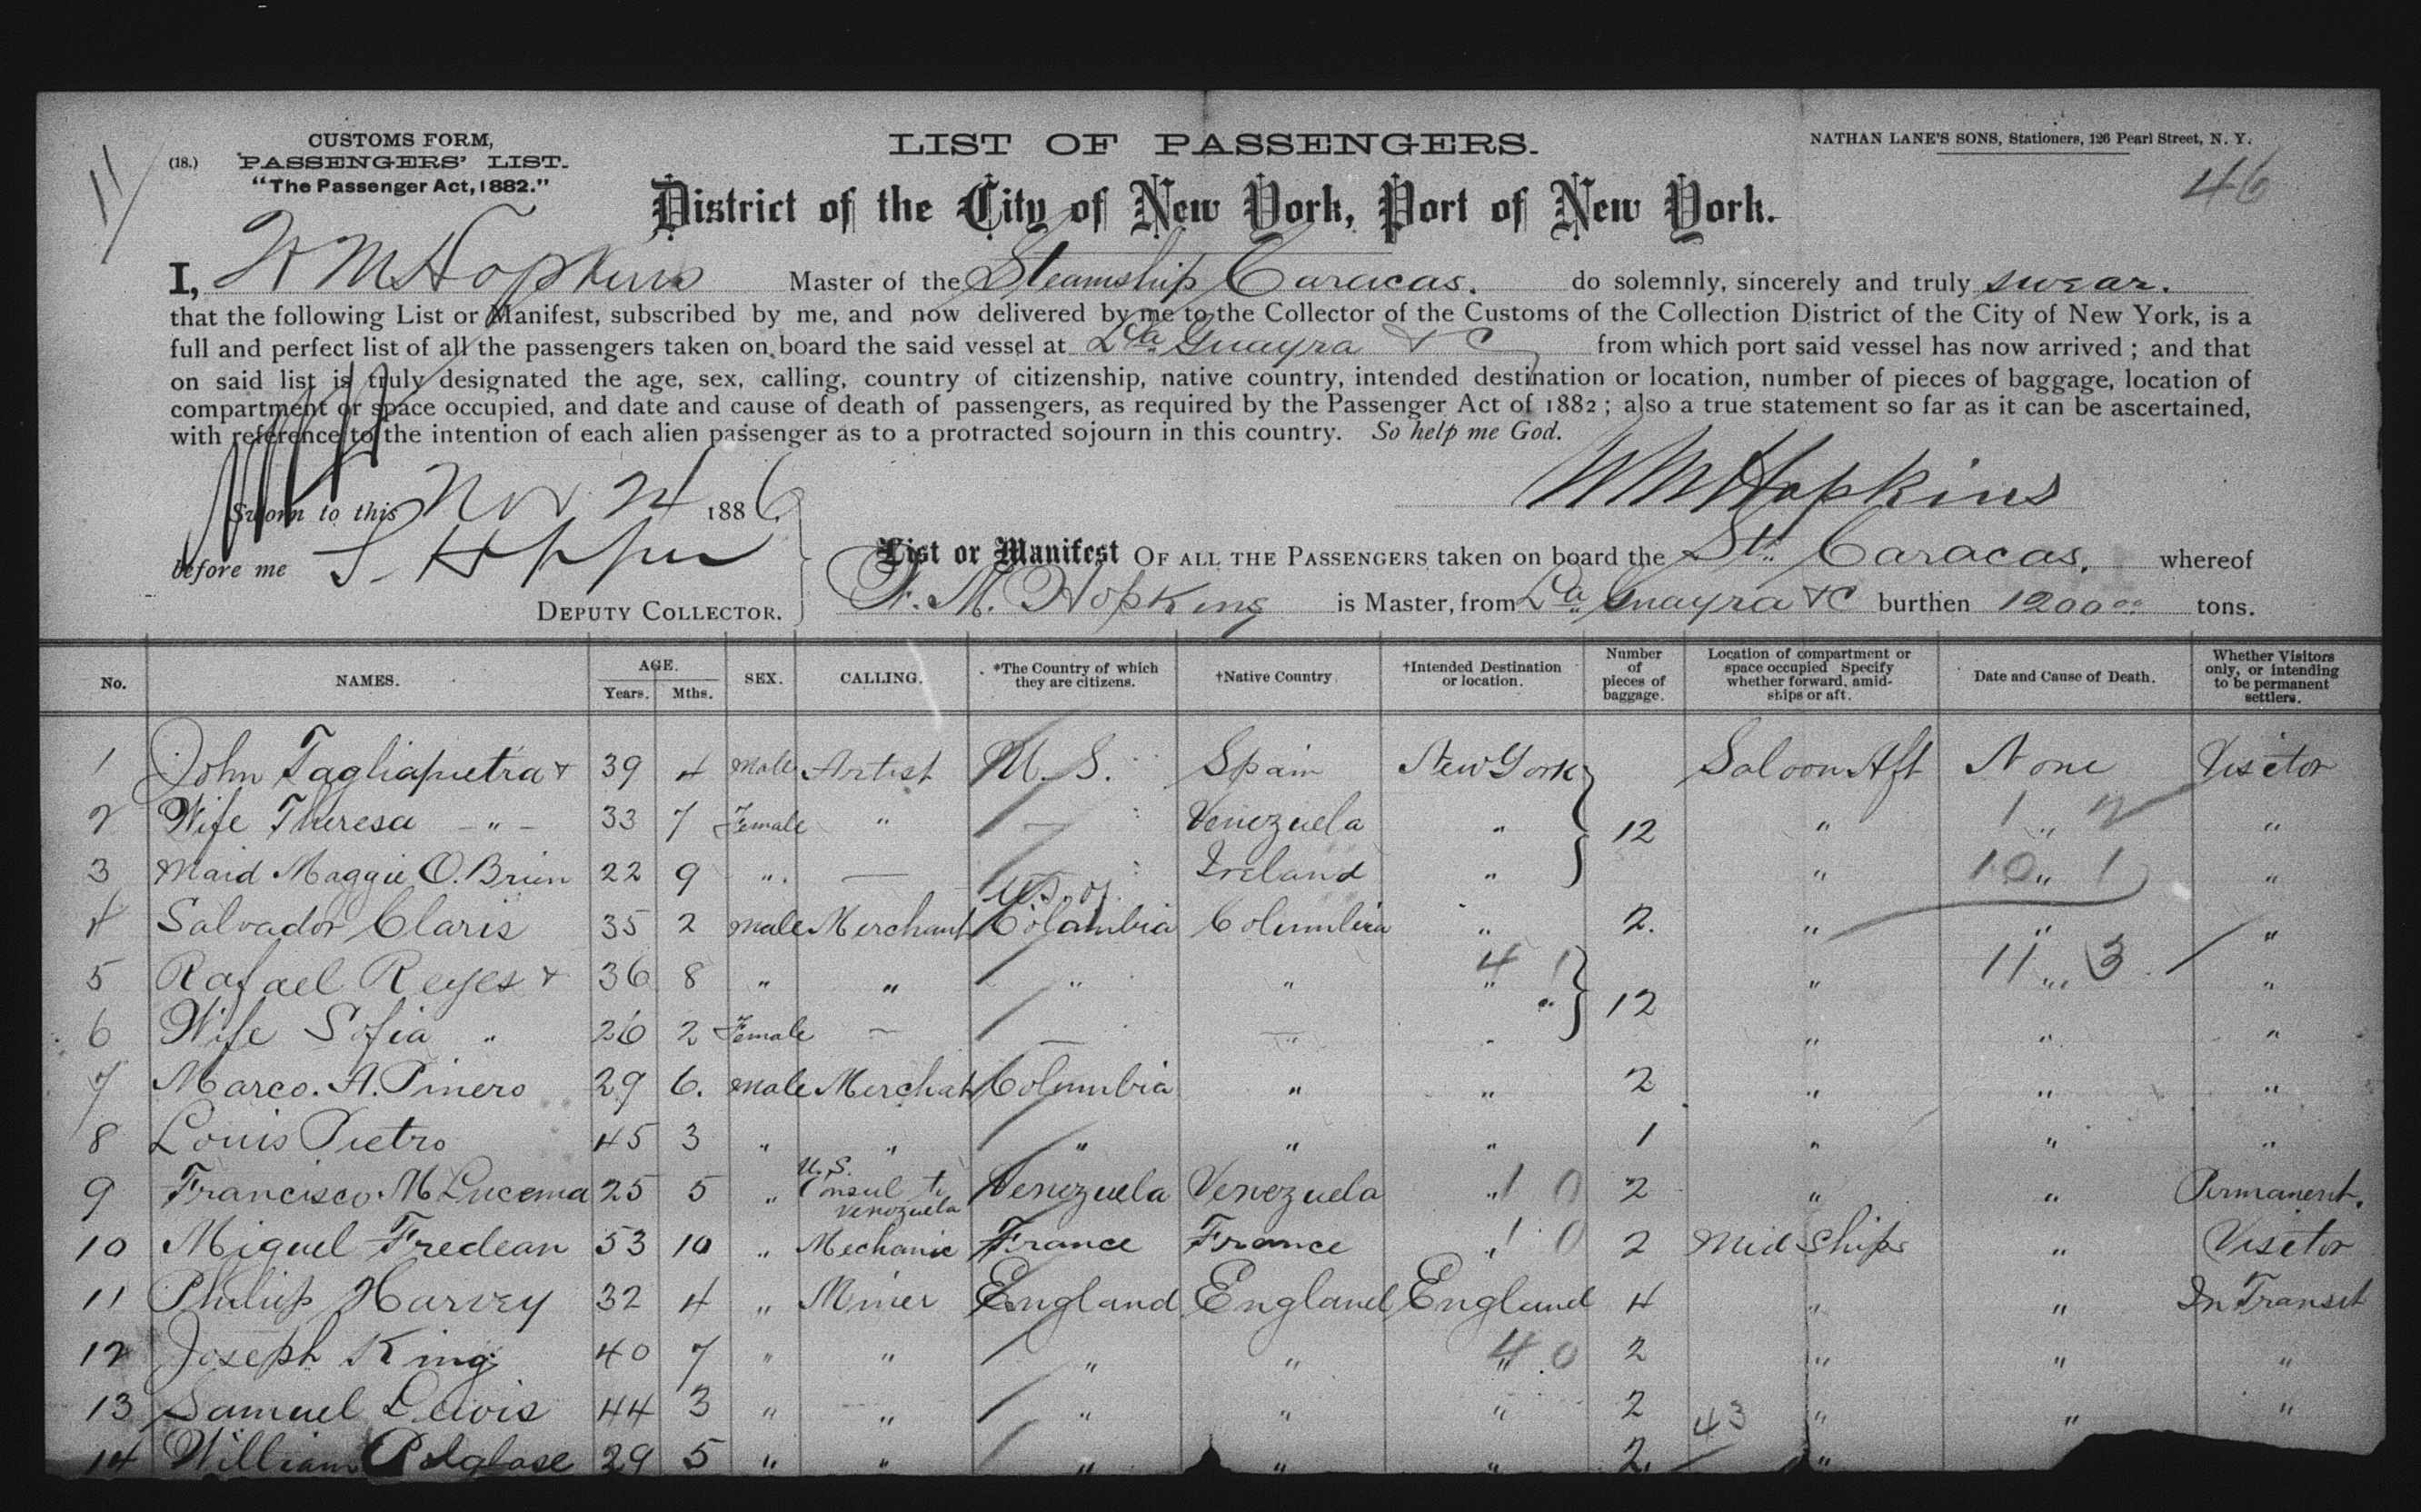 11
(18.)
CUSTOMS FORM,
PASSENGERS' LIST.
"The Passenger Act, 1882."
LIST OF PASSENGERS.
NATHAN LANE'S SONS, Stationers, 126 Pearl Street, N. Y.
46
District of the City of New York, Port of New York.
I, W M Hopkins Master of the Steamship Caracas. do solemnly, sincerely and truly swear.
that the following List or Manifest, subscribed by me, and now delivered by me to the Collector of the Customs of the Collection District of the City of New York, is a
full and perfect list of all the passengers taken on board the said vessel at La Guayra & C from which port said vessel has now arrived ; and that
on said list is truly designated the age, sex, calling, country of citizenship, native country, intended destination or location, number of pieces of baggage, location of
compartment or space occupied, and date and cause of death of passengers, as required by the Passenger Act of 1882 ; also a true statement so far as it can be ascertained,
with reference to the intention of each alien passenger as to a protracted sojourn in this country. So help me God.
W M Hopkins
Sworn to this Nov 24 1886
before me
DEPUTY COLLECTOR.
List or Manifest OF ALL THE PASSENGERS taken on board the Str Caracas, whereof
W. M. Hopkins is Master, from La Guayra & C burthen 1200 00 tons.
No. NAMES. AGE. Years. Mths. SEX. CALLING. *The Country of which they are citizens. †Native Country. †Intended Destination or location. Number of pieces of baggage. Location of compartment or space occupied Specify whether forward, amidships or aft. Date and Cause of Death. Whether Visitors only, or intending to be permanent settlers.
1 John Tagliapietra & 39 4 Male Artist U. S. Spain New York Saloon Aft None Visitor
2 Wife Theresa - " - 33 7 Female " — Venezuela " 12 " " "
3 Maid Maggie O. Brien 22 9 " — — Ireland " " " "
4 Salvador Claris 35 2 Male Merchant U.S. of Colombia Columbia " 2. " " "
5 Rafael Reyes & 36 8 " " " " " " " "
6 Wife Sofia " 26 2 Female — — " " 12 " " "
7 Marco. A. Pinero 29 6. Male Merchat Columbia " " 2 " " "
8 Louis Pietro 45 3 " " " " " 1 " " "
9 Francisco M Lucema 25 5 " U.S. Consul to Venezuela Venezuela Venezuela " 1 0 2 " " Permanent.
10 Miguel Fredean 53 10 " Mechanic France France " 1 0 2 Mid Ships " Visitor
11 Philip Harvey 32 4 " Miner England England England 4 " " In Transit
12 Joseph King 40 7 " " " " " 4 0 2 " " "
13 Samuel Lewis 44 3 " " " " " 2 " " "
14 William Polglase 29 5 " " " " " 2. 43 "